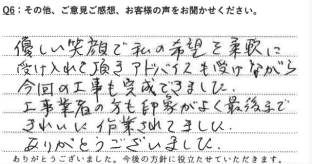 Q6：その他、ご意見ご感想、お客様の声をお聞かせください。
優しい笑顔で私の希望を柔軟に
受け入れて頂きアドバイスも受けながら
今回の工事も完成できました。
工事業者の方も印象がよく最後まで
きれいに作業されてました。
ありがとうございました。
ありがとうございました。今後の方針に役立たせていただきます。